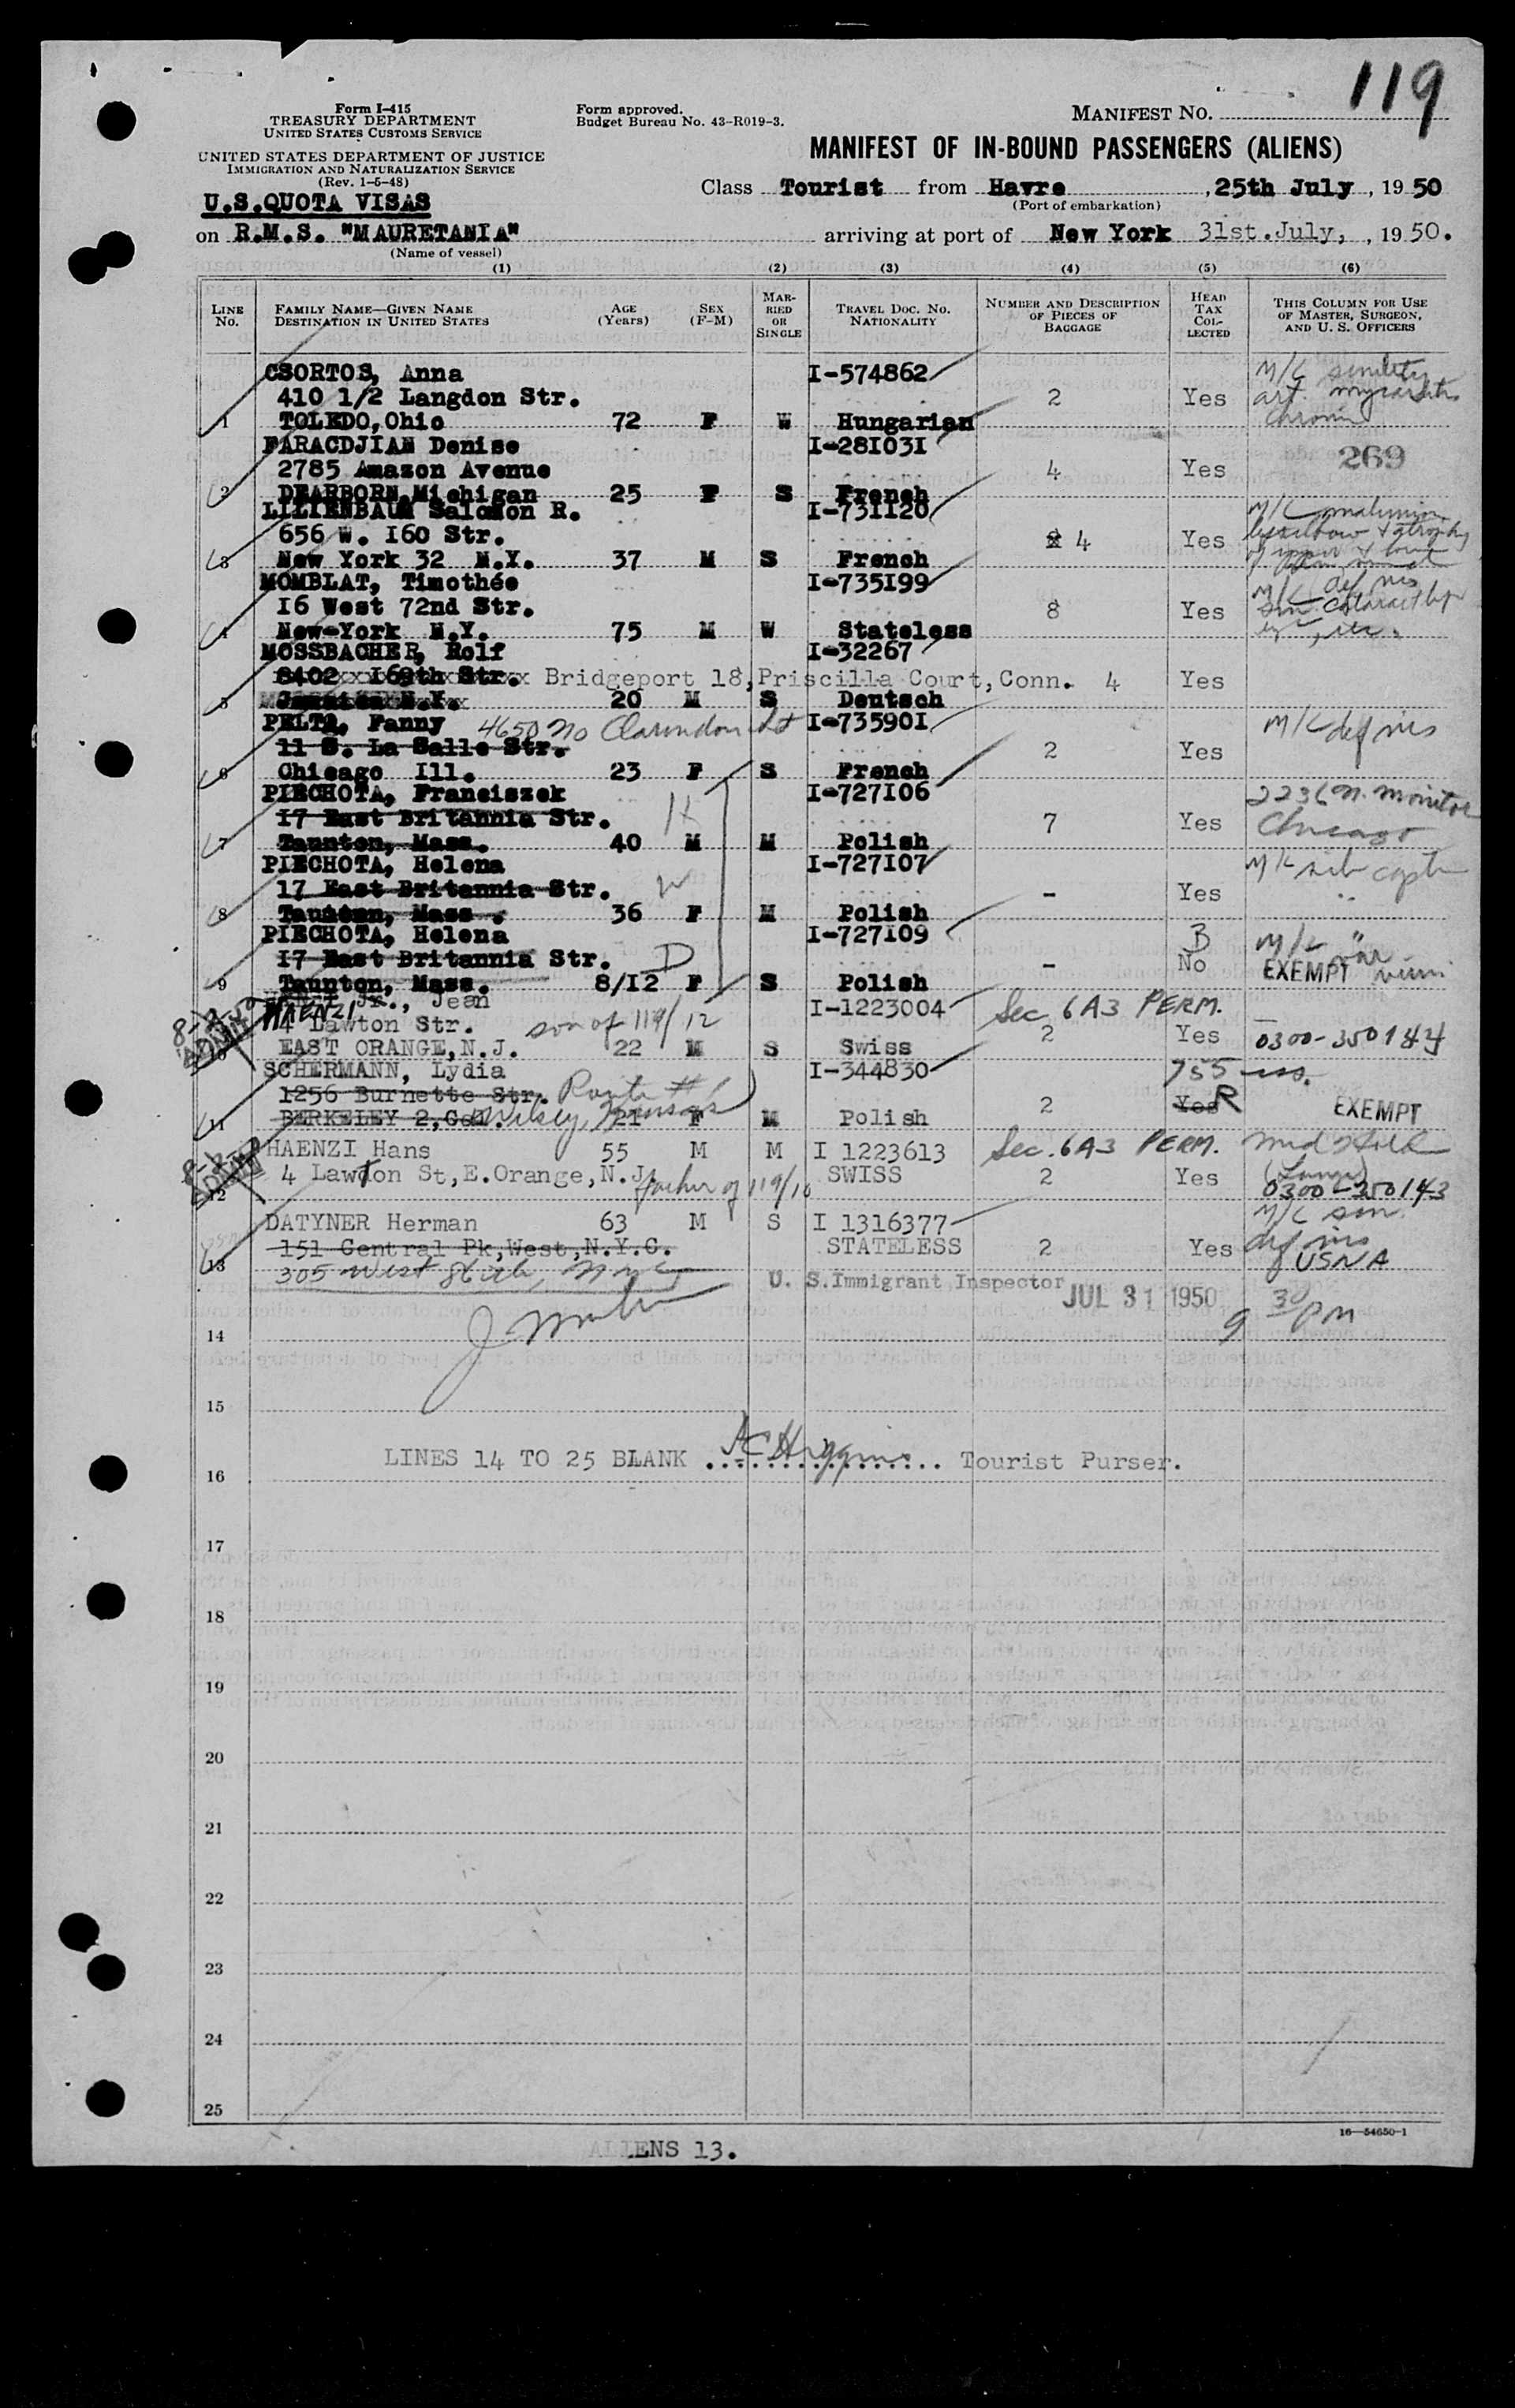 119
Form I-415
TREASURY DEPARTMENT
UNITED STATES CUSTOMS SERVICE
Form approved.
Budget Bureau No. 43-R019-3.
MANIFEST NO.
UNITED STATES DEPARTMENT OF JUSTICE
IMMIGRATION AND NATURALIZATION SERVICE
(Rev. 1-5-48)
MANIFEST OF IN-BOUND PASSENGERS (ALIENS)
Class Tourist from Havre, 25th July, 1950
(Port of embarkation)
U.S.QUOTA VISAS
on R.M.S. "MAURETANIA" arriving at port of New York 31st.July, , 1950.
(Name of vessel)
(1) (2) (3) (4) (5) (6)
LINE No. FAMILY NAME—GIVEN NAME DESTINATION IN UNITED STATES AGE (Years) SEX (F-M) MARRIED OR SINGLE TRAVEL DOC. NO. NATIONALITY NUMBER AND DESCRIPTION OF PIECES OF BAGGAGE HEAD TAX COLLECTED THIS COLUMN FOR USE OF MASTER, SURGEON, AND U. S. OFFICERS
CSORTOS, Anna I-574862 M/C senility
410 1/2 Langdon Str. 2 Yes art. myocarditis
1 TOLEDO,Ohio 72 F W Hungarian chronic
FARACDJIAN Denise I-281031
2785 Amazon Avenue 4 Yes 269
2 DEARBORN,Michigan 25 F S French
LILIENBAUM Salomon R. I-731120 M/C malunion
656 W. 160 Str. 4 Yes left elbow & atrophy
3 New York 32 N.Y. 37 M S French of upper &
MOMBLAT, Timothée I-735199 M/C def vis
16 West 72nd Str. 8 Yes cataract
4 New-York N.Y. 75 M W Stateless
MOSSBACHER, Rolf I-32267
8402 169th Str. Bridgeport 18,Priscilla Court,Conn. 4 Yes
5 Jamaica N.Y. 20 M S Deutsch
PELTA, Fanny 4650 No Clarendon I-735901 M/C def vis
11 S. La Salle Str. 2 Yes
6 Chicago Ill. 23 F S French
PIECHOTA, Franciszek I-727106 2236 N. Monitor
17 East Britannia Str. H 7 Yes Chicago
7 Taunton, Mass. 40 M M Polish
PIECHOTA, Helena I-727107 M/C
17 East Britannia Str. W - Yes
8 Taunton, Mass. 36 F M Polish
PIECHOTA, Helena I-727109 B M/C
17 East Britannia Str. D - No EXEMPT
9 Taunton, Mass. 8/12 F S Polish
HAENZI Jr., Jean I-1223004 Sec 6A3 PERM.
4 Lawton Str. son of 119/12 2 Yes 0300-350144
10 EAST ORANGE,N.J. 22 M S Swiss
SCHERMANN, Lydia I-344830 755
1256 Burnette Str. Route #1 2 Yes R EXEMPT
11 BERKELEY 2,Cal. Wilsey, Kansas 21 F M Polish
HAENZI Hans 55 M M I 1223613 Sec. 6A3 PERM.
4 Lawton St,E.Orange,N.J. father of 119/10 SWISS 2 Yes 0300-350143
12
DATYNER Herman 63 M S I 1316377 M/C
151 Central Pk,West,N.Y.C. STATELESS 2 Yes def vis
13 305 West 86th, NYC USNA
U. S. Immigrant Inspector JUL 31 1950 9 30 PM
14
15
LINES 14 TO 25 BLANK AC Higgins Tourist Purser.
16
17
18
19
20
21
22
23
24
25
16—54650-1
ALIENS 13.